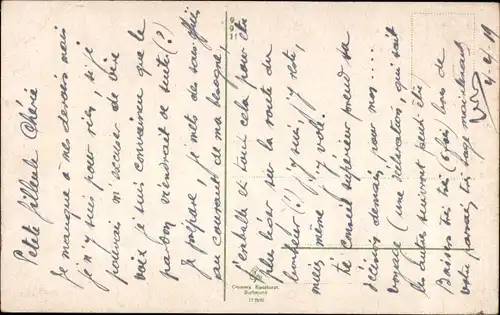 Petite filleule chérie
Je manque à mes devoirs mais
je n'y suis pour rien, si je
pouvais m'excuser de vive
voix je suis convaincu que le
pardon viendrait de suite (?)
Je prépare, je mets des sous-
au courant de ma besogne,
j'emballe et tout cela pour être
plus léger sur la route du
bonheur (?) j'y suis, j'y reste,
mieux même j'y vole.
Le conseil supérieur prend sa
décision demain pour mon....
voyage (une révélation), qui sait
les autres suivront peut-être
Baisers très très (6 fois) bons de
votre parrain très sage maintenant
2.2.19
Cramers Kunstanst.
Dortmund